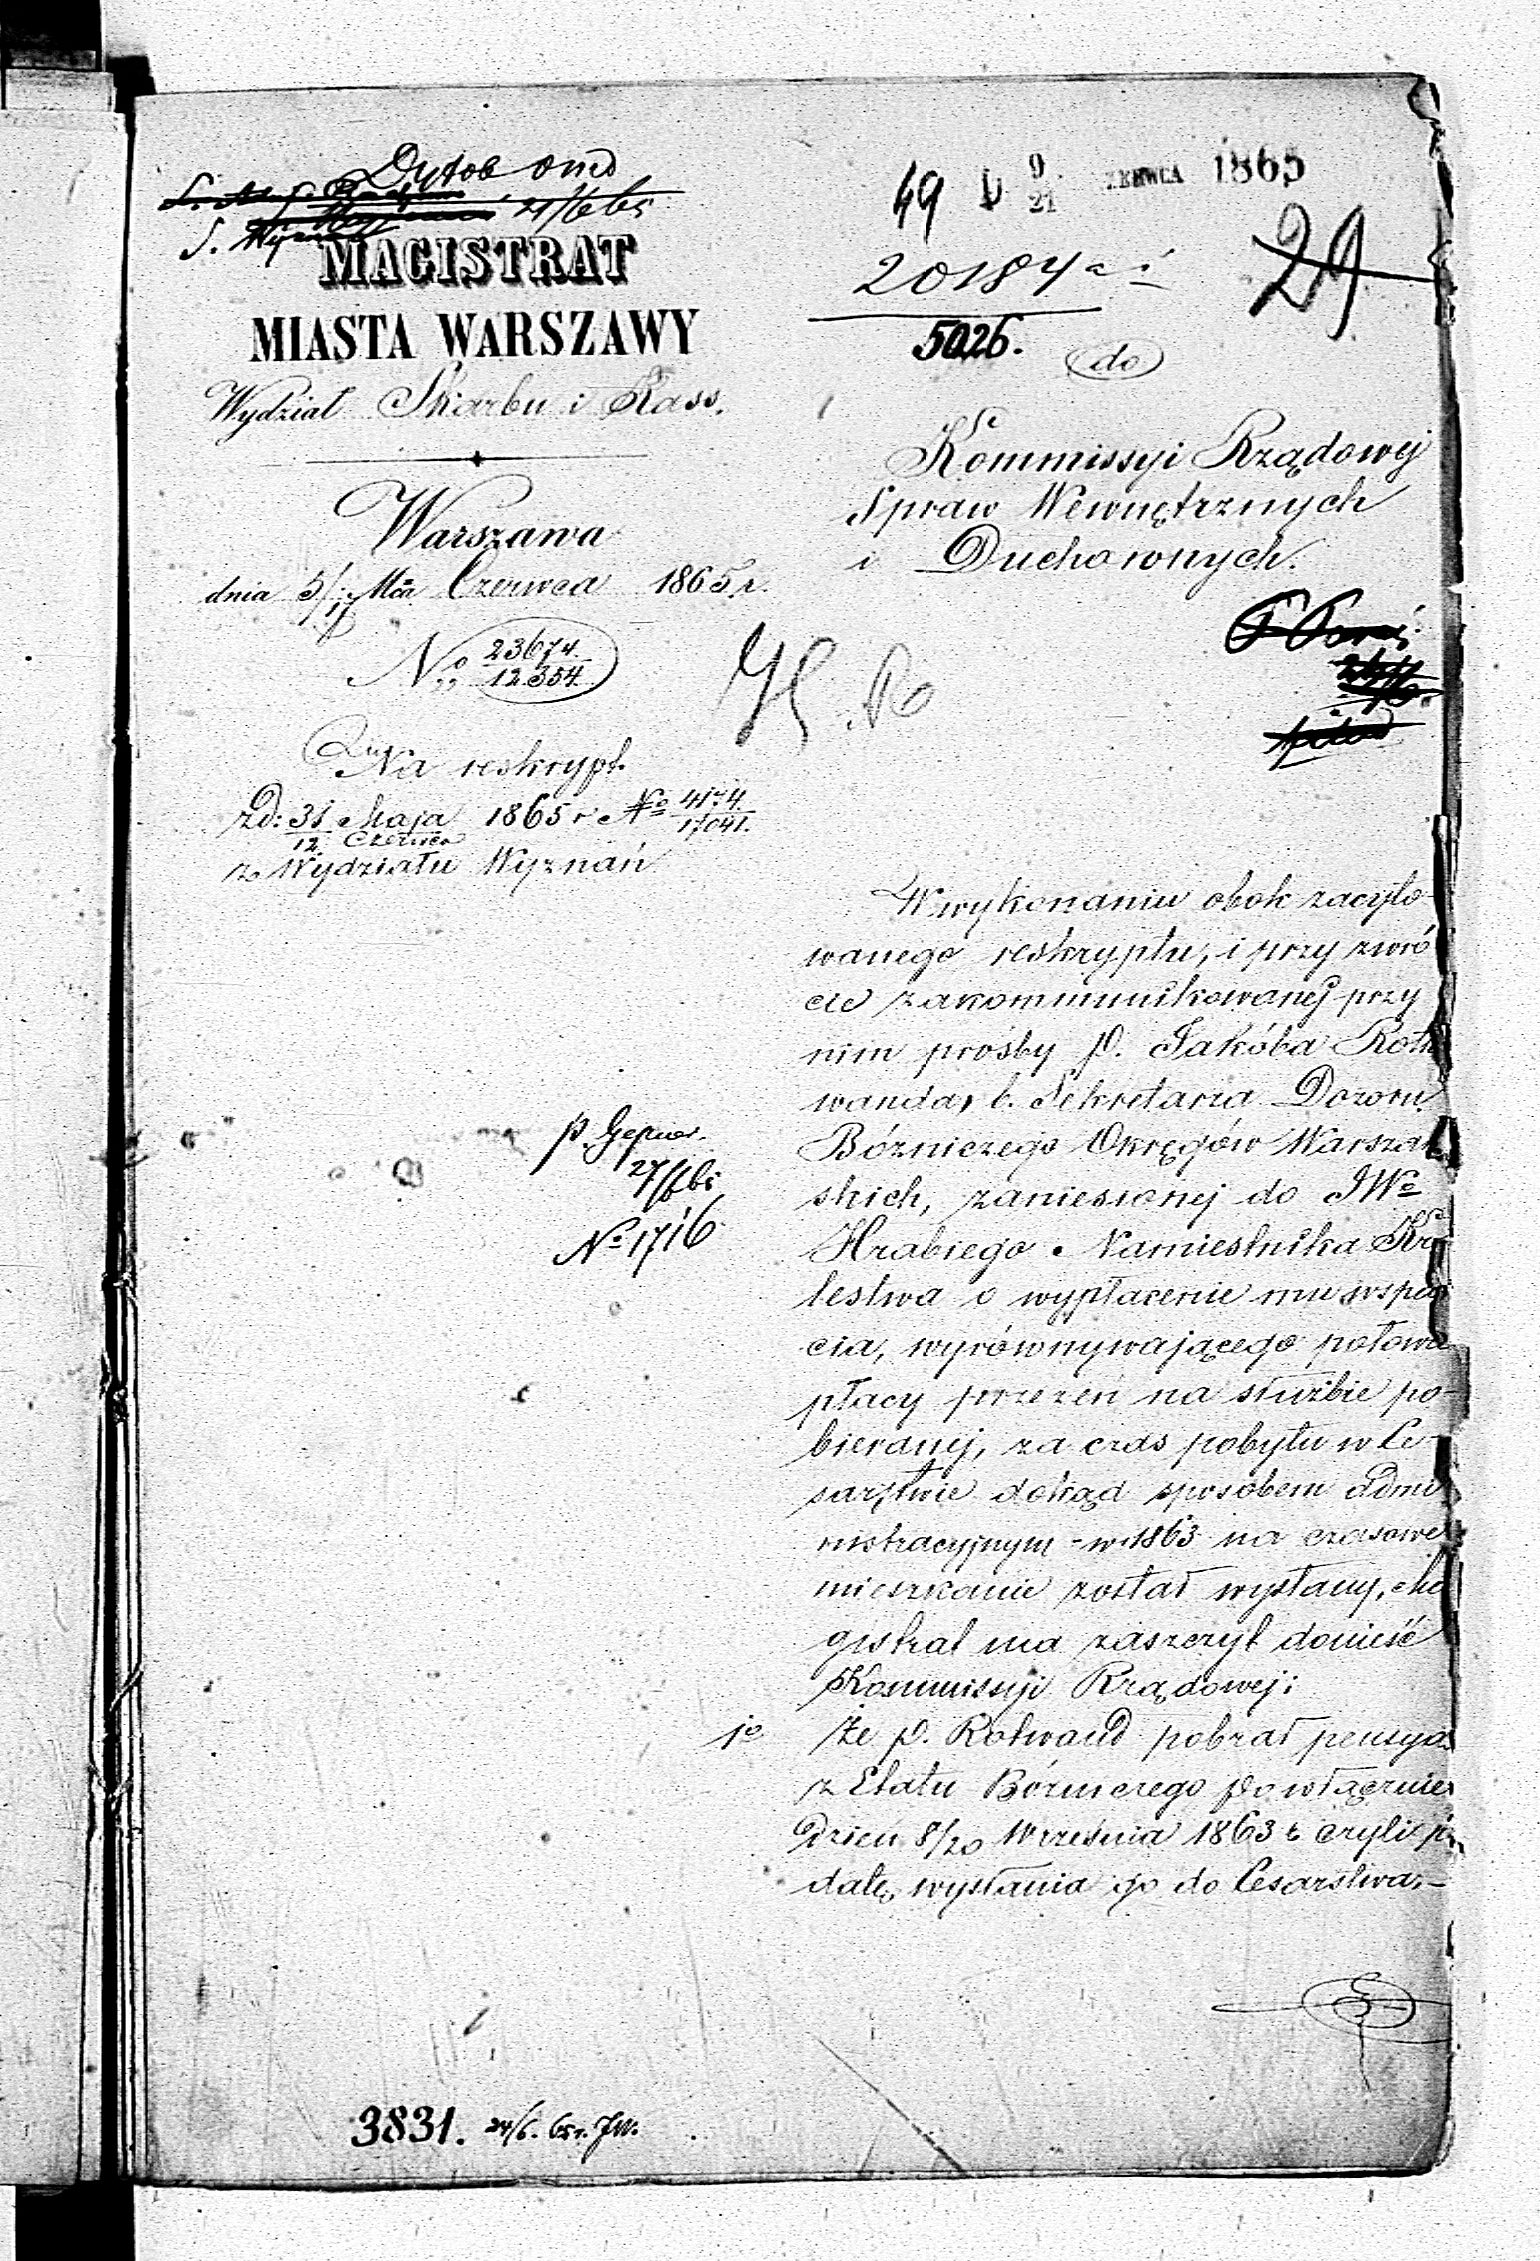 21/6 65
MAGISTRAT
MIASTA WARSZAWY
Wydział Skarbu i Kass.
Warszawa
dnia 5/17 Mca Czerwca 1865 r.
No 23674.
12.354.
Na reskrypt
z D: 31 Maja 1865 r No
12 Czerwca 17041.
z Wydziału Wyznań
p. Gepner.
27/6 65
No 1716
3831. 24/6. 65 r.
49 9/21 CZERWCA 1865
20184
5026.
29
do
Kommissyi Rządowej
Spraw Wewnętrznych
i Duchownych.
W wykonaniu obok zacyto-
wanego reskryptu, i przy zwró
cie zakommunikowanej przy
nim prośby P. Jakóba Roth
wanda, b. Sekretarza Dozoru
Bóżniczego Okręgów Warszaw
skich, zaniesionej do JWo
Hrabiego Namiestnika Kró
lestwa o wypłacenie mu wspar
cia, wyrównywającego połowie
płacy przezeń na służbie po-
bieranej, za czas pobytu w Ce-
sarstwie dokąd sposobem admi
nistracyjnym w 1863 na czasowe
mieszkanie został wysłany, Ma
gistrat ma zaszczyt donieść
Kommissyi Rządowej:
1o Że P. Rotwand pobrał pensyą
z Etatu Bóżniczego po włącznie
Dzień 8/20 Września 1863 r czyli po
datę wysłania go do Cesarstwa,-